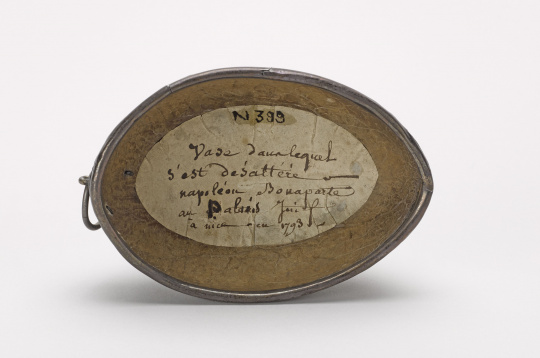 N 399
Vase dans lequel
s'est désaltéré
napoléon Bonaparte
au Palais Juif
à nice en 1793